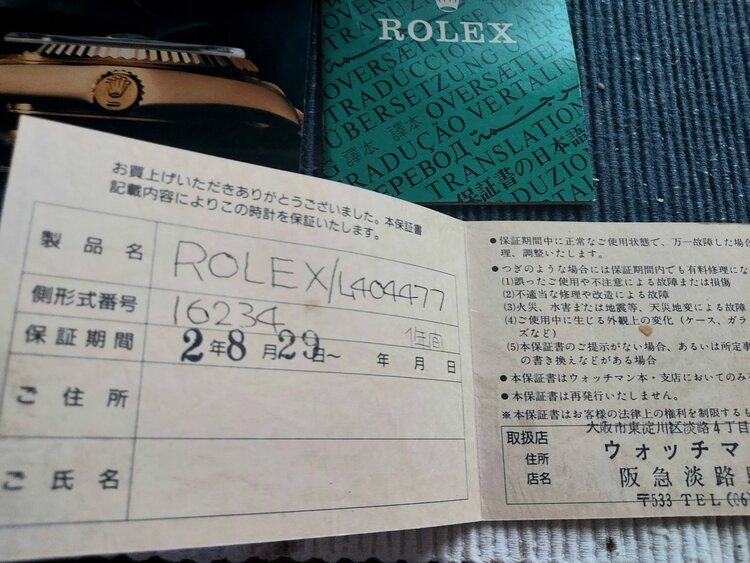 ROLEX
OVERSÆTT
TRADUCCIÓ
ÜBERSETZUNG
OVERSÆTTE
TRADUÇÃO VERTALIN
譯本 譯本
TRANSLATION
保証書の日本語
お買上げいただきありがとうございました。本保証書
記載内容によりこの時計を保証いたします。
製品名 ROLEX/L404477
側形式番号 16234
保証期間 2年8月29日〜 年 月 日 1年間
ご住所
ご氏名
●保証期間中に正常なご使用状態で、万一故障した場合
理、調整いたします。
●つぎのような場合には保証期間内でも有料修理にな
(1)誤ったご使用や不注意による故障または損傷
(2)不適当な修理や改造による故障
(3)火災、水害または地震等、天災地変による故障
(4)ご使用中に生じる外観上の変化(ケース、ガラ
ズなど)
(5)本保証書のご提示がない場合、あるいは所定事
の書き換えなどがある場合
●本保証書はウォッチマン本・支店においてのみ
●本保証書は再発行いたしません。
※本保証書はお客様の法律上の権利を制限するも
大阪市東淀川区淡路4丁目
取扱店
住所
店名
ウォッチマ
阪急淡路
〒533 TEL(06